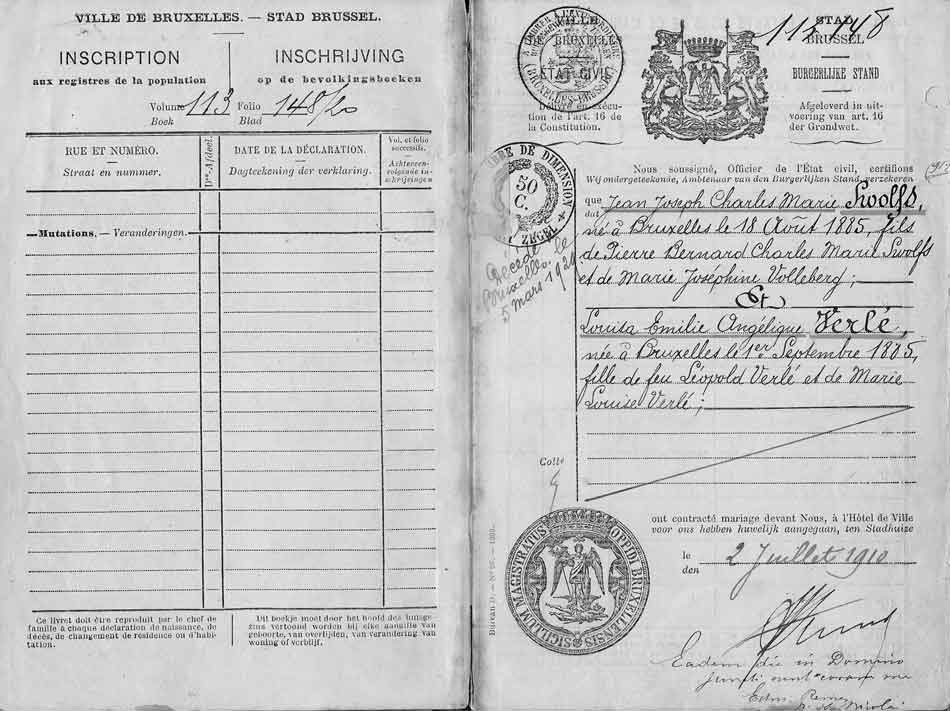 VILLE DE BRUXELLES. — STAD BRUSSEL.
INSCRIPTION
aux registres de la population
INSCHRIJVING
op de bevolkingsboeken
Volume 113 Folio 148/20
Boek Blad
RUE ET NUMÉRO.
Straat en nummer.
Don Afdeel.
DATE DE LA DÉCLARATION.
Dagteekening der verklaring.
Vol. et folio
successifs.
Achtereen-
volgende in-
schrijvingen
Mutations. — Veranderingen.
Ce livret doit être reproduit par le chef de
famille à chaque déclaration de naissance, de
décès, de changement de résidence ou d'habi-
tation.
Dit boekje moet door het hoofd des huisge-
zins vertoond worden bij elke aangifte van
geboorte, van overlijden, van verandering van
woning of verblijf.
VILLE
BRUXELLES
ÉTAT CIVIL
(BRUXELLES-BRUSSEL)
Délivré en exécu-
tion de l'art. 16 de
la Constitution.
STAD
BRUSSEL
BURGERLIJKE STAND
Afgeleverd in uit-
voering van art. 16
der Grondwet.
TIMBRE DE DIMENSION
50
C.
ZEGEL
Nous soussigné, Officier de l'État civil, certifions
Wij ondergeteekende, Ambtenaar van den Burgerlijken Stand, verzekeren
que Jean Joseph Charles Marie Swolfs,
dat
né à Bruxelles le 18 Août 1885, fils
de Pierre Bernard Charles Marie Swolfs
et de Marie Joséphine Volleberg;
Et
Louisa Emilie Angélique Verlé,
née à Bruxelles le 1er Septembre 1885,
fille de feu Léopold Verlé et de Marie
Louise Verlé;
Décédé
Bruxelles le
5 mars
Collé
ont contracté mariage devant Nous, à l'Hôtel de Ville
voor ons hebben huwelijk aangegaan, ten Stadhuize
le 2 Juillet 1910
den
SIGILLUM MAGISTRATUS OPPIDI BRUXELLENSIS
Eadem die in Domino
juncti sunt coram me